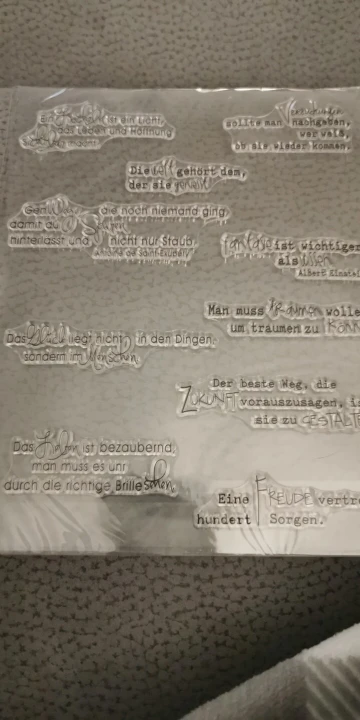 Ein Lächeln ist ein Licht,
das Leben und Hoffnung
macht.
Versuchungen
sollte man nachgeben,
wer weiß,
ob sie wieder kommen.
Die Welt gehört dem,
der sie genießt.
Geh Wege, die noch niemand ging,
damit du Spuren
hinterlässt und nicht nur Staub.
Antoine de Saint-Exupéry
Fantasie ist wichtiger
als Wissen
Albert Einstein
Man muss träumen wolle
um träumen zu KÖNN
Das Glück liegt nicht in den Dingen,
sondern im Menschen.
Der beste Weg, die
ZUKUNFT vorauszusagen, is
sie zu GESTALTE
Das Leben ist bezaubernd,
man muss es nur
durch die richtige Brille sehen.
Eine FREUDE vertre
hundert Sorgen.